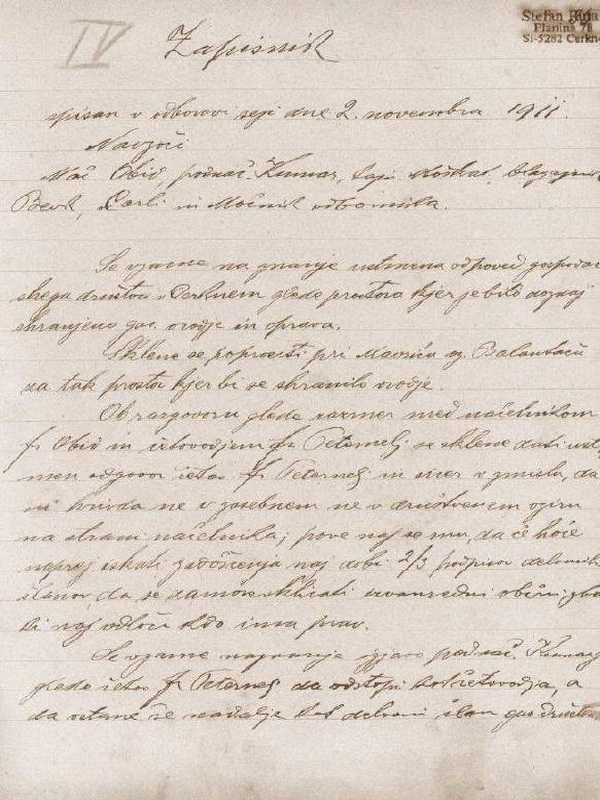 IV
Zapisnik
Stefan
Planina 78
SI-5282 Cerkno
spisan v odborovi seji dne 2. novembra 1911.
Navzoči
Nač. Obid, podnač. Kumar, tajn. Moškat, blagajnik
Bevk, Carli in Močnik odbornika.
Se vzame na znanje ustmena odpoved gospodar
skega društva v Cerknem glede prostora kjer je bilo dozdaj
shranjeno gas. orodje in oprava.
Sklene se poprositi pri oz.
za tak prostor kjer bi se shranilo orodje.
Ob razgovoru glede razmer med načelnikom
fr Obid in četovodjem fr Peternelj se sklene dati ust
men odgovor četov. fr Peternelj in sicer v smislu, da
ni krivda ne v posebnem ne v društvenem oziru
na strani načelnika; pove naj se mu, da če hoče
naprej iskati zadoščenja naj dobi 2/3 podpisov delovnih
članov, da se zamore sklicati izvanredni občni zbor
ki naj odloči kdo ima prav.
Se vzame na znanje izjavo podnač. Kumar
glede četov. fr Peternelj da odstopi kot četovodja, a
da ostane še nadalje kot delovni član gas. društva